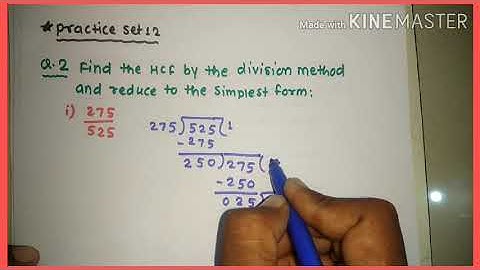 Made with KINEMASTER
* Practice set 12
Q.2 Find the HCF by the division method
and reduce to the simplest form:
i) 275
525
275) 525 ( 1
- 275
250) 275 (
- 250
025)